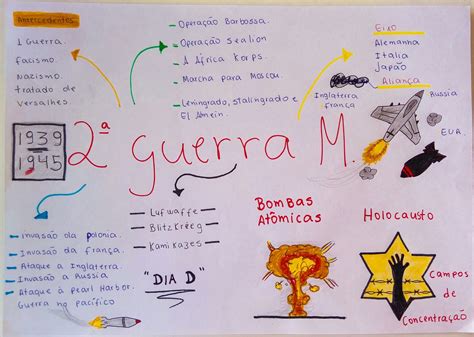 Antecedentes
1 Guerra.
Facismo.
Nazismo.
tratado de
Versalhes
- Operação Barbossa.
- Operação Sealion
- A África Korps.
- Marcha para Moscou.
- Leningrado, Stalingrado e
El Amein.
Eixo
Alemanha
Italia
Japão
Aliança
Inglaterra
frança
Russia
EUA.
1939
1945
2ª Guerra M.
- Invasão da polonia.
- Invasão da frança.
- Ataque a Inglaterra.
- Invasão a Russia
- Ataque à pearl Harbor.
Guerra no pacífico
- Lufwaffe
- Blitzkrieg
- Kamikazes
"DIA D"
Bombas
Atômicas
Holocausto
Campos
de
Concentração